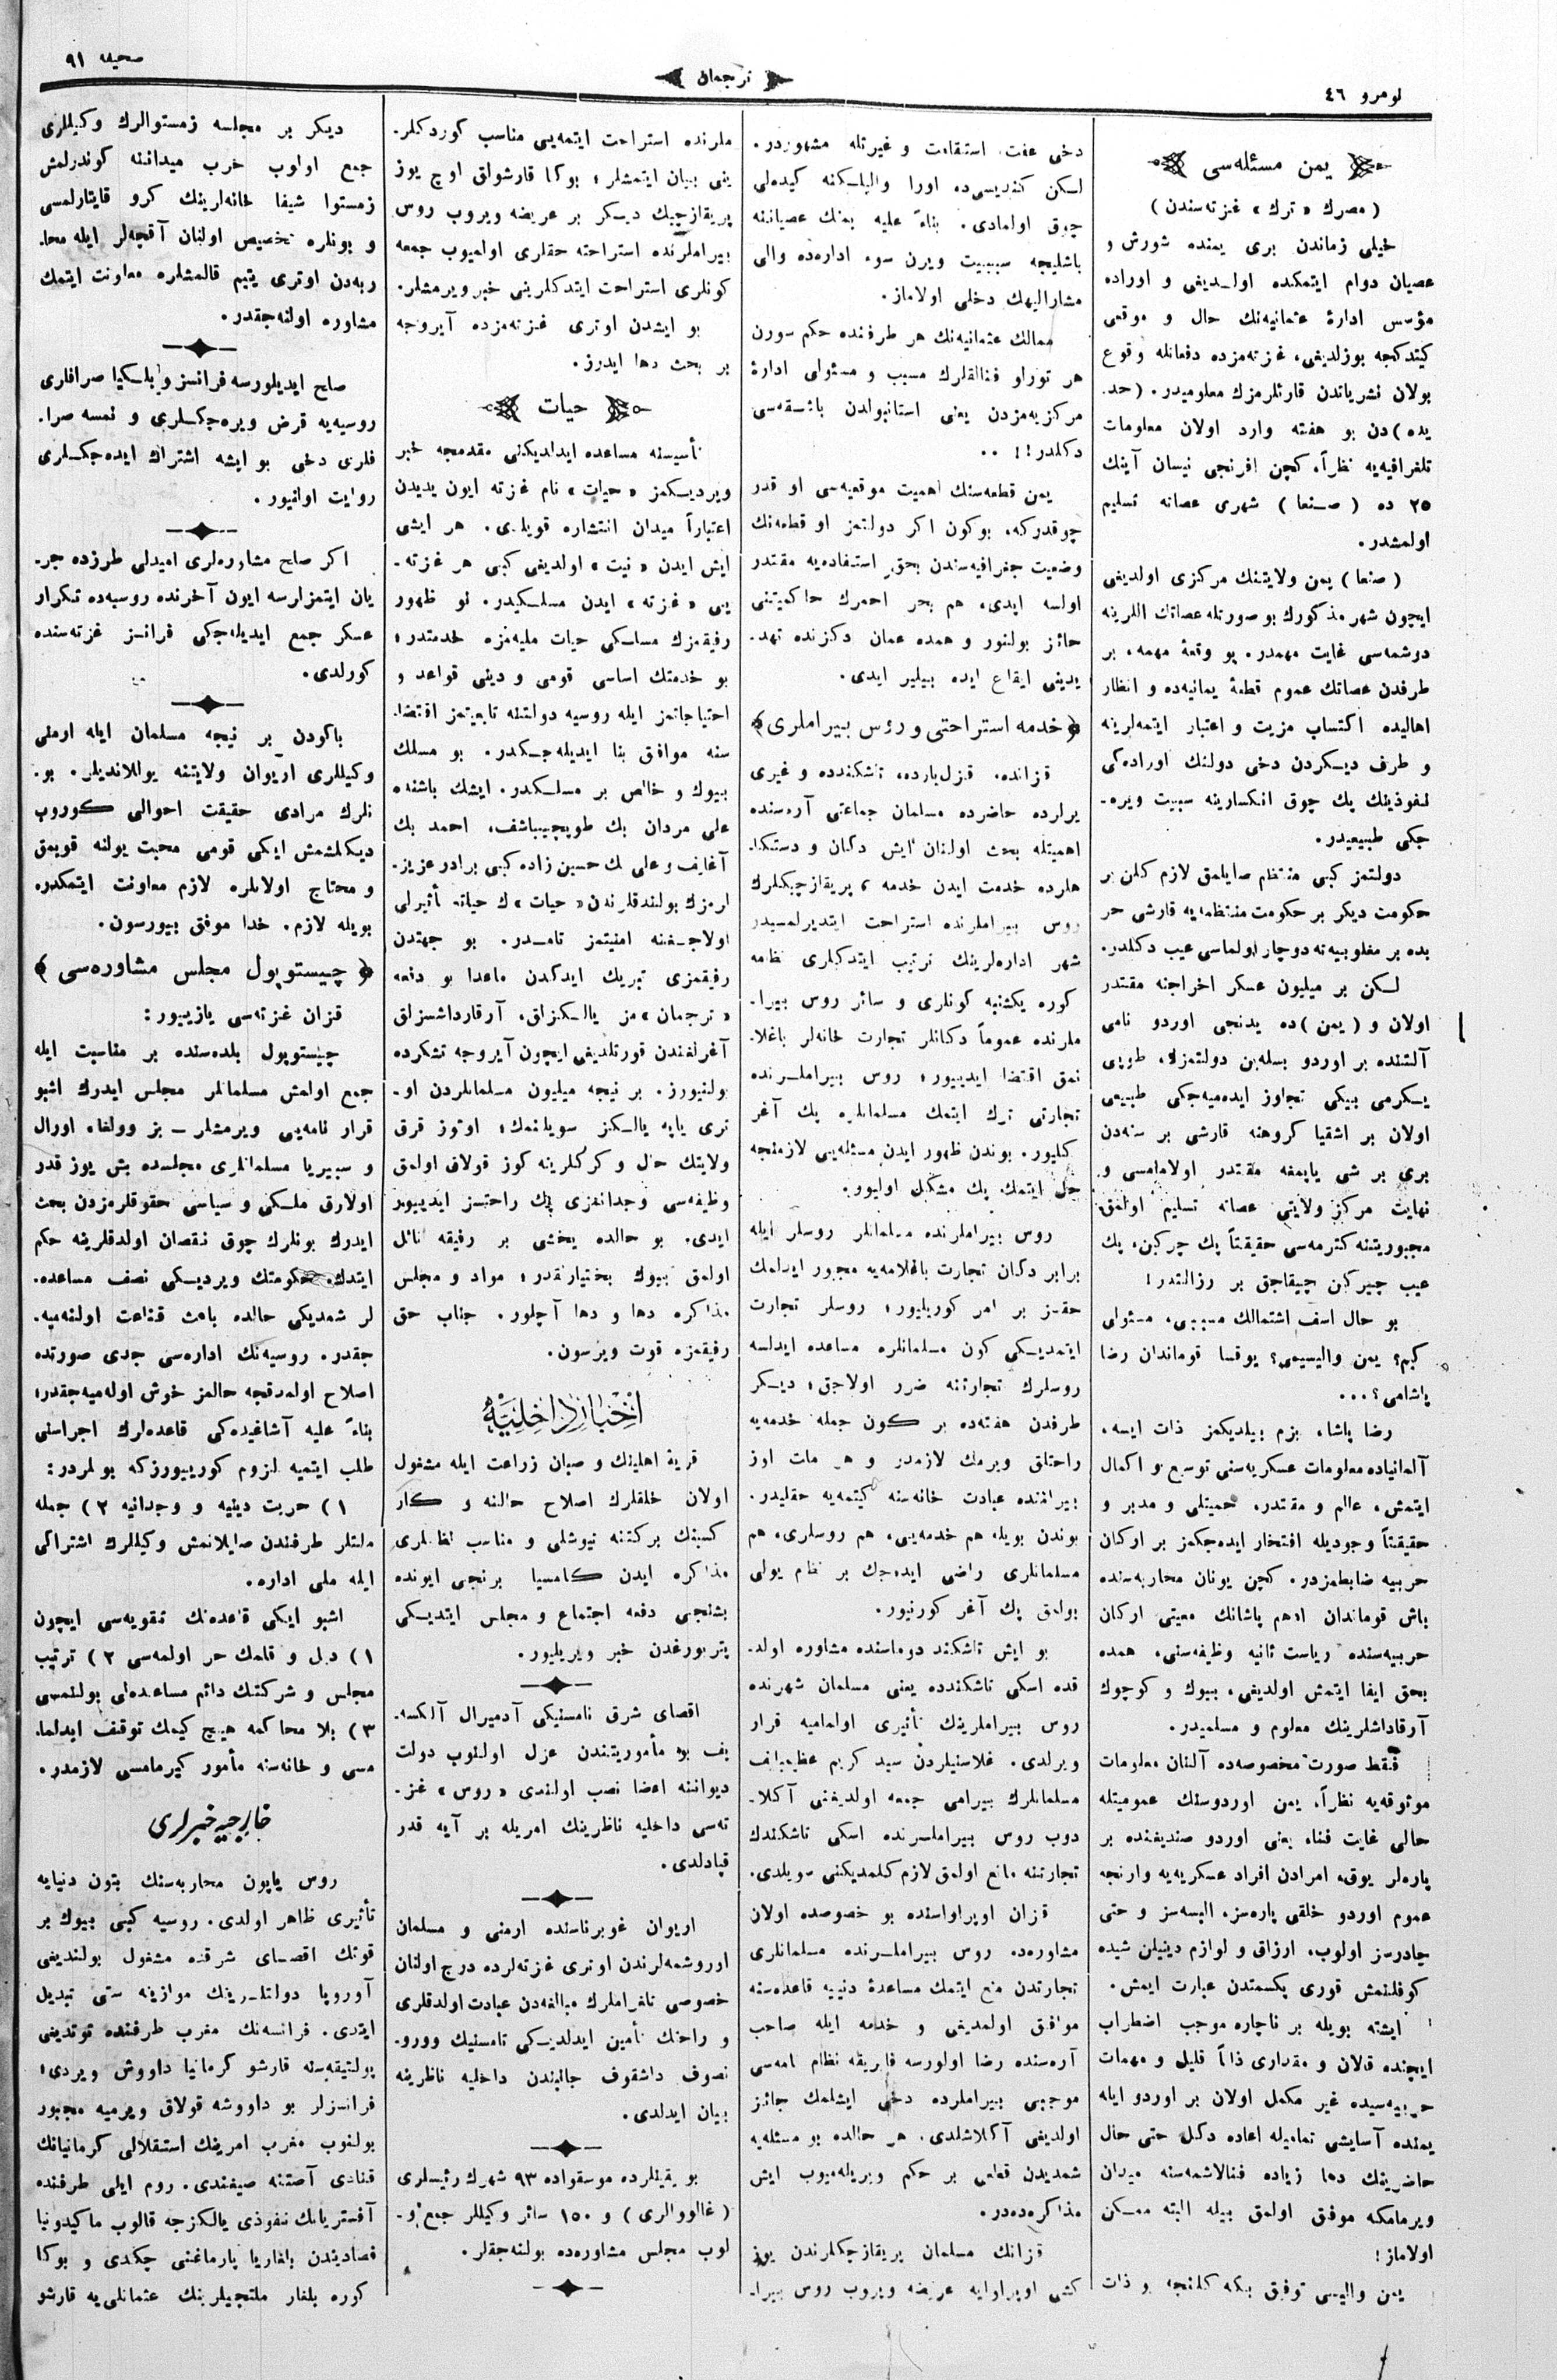 نومرو ٤٦
ترجمان
صحیفه ٩١
یمن مسئله‌سی
( مصرك «ترك» غزته‌سندن )
خیلی زماندن بری یمنده شورش و
عصیان دوام ایتمکده اولـدیغی و اوراده
مؤسس ادارهٔ عثمانیه‌نك حال و موقعی
کیتدکجه بوزلدیغی، غزته‌مزده دفعاتله وقوع
بولان نشریاتدن قارئلرمزك معلومیدر. (حد-
یده) دن بو هفته وارد اولان معلومات
تلغرافیه‌یه نظراً، کچن افرنجی نیسان آینك
٢٥ ده ( صـنعا ) شهری عصاته تسلیم
اولمشدر.
( صنعا ) یمن ولایتنك مرکزی اولدیغی
ایچون شهر مذکورك بو صورتله عصاتك اللرینه
دوشمه‌سی غایت مهمدر. بو وقعهٔ مهمه، بر
طرفدن عصاتك عموم قطعهٔ یمانیه‌ده و انظار
اهالیده اکتساب مزیت و اعتبار ایتمه‌لرینه
و طرف دیـکردن دخی دولتك اوراده‌کی
نـفوذینك پك چوق انکسارینه سببیت ویره-
جکی طبیعیدر.
دولتمز کبی منتظم صایلمق لازم کلن بر
حکومت دیکر بر حکومت منتظمه‌یه قارشی حر
بده بر مغلوبیته دوچار اولماسی عیب دکلدر.
لـکن بر میلیون عسکر اخراجنه مقتدر
اولان و ( یمن ) ده یدنجی اوردو نامی
آلتنده بر اوردو بسله‌ین دولتمزك، طوپی
یـکرمی بیکی تجاوز ایده‌میه‌جکی طبیعی
اولان بر اشقیا کروهنه قارشی بر سنه‌دن
بری بر شی یاپمغه مقتدر اولامامسی و
نهایت مرکز ولایتی عصاته تسلیم اولمق
مجبوریتنه کتیرمه‌سی حقیقتاً پك چرکین، پك
عیب چیرکین چیقاجق بر رزالتدر!
بو حال اسف اشتمالك مسببی، مسئولی
کیم؟ یمن والیسیمی؟ یوقسا قوماندان رضا
پاشامی؟...
رضا پاشا، بزم بیلدیکمز ذات ایسه،
آلمانیاده معلومات عسکریه‌سنی توسیع و اکمال
ایتمش، عالم و مقتدر، حمیتلی و مدبر و
حقیقتاً وجودیله افتخار ایده‌جکمز بر ارکان
حربیه ضابطمزدر. کچن یونان محاربه‌سنده
باش قوماندان ادهم پاشانك معیتی ارکان
حربیه‌سنده ریاست ثانیه وظیفه‌سنی، همده
بحق ایفا ایتمش اولدیغی، بیوك و کوچوك
آرقاداشلرینك معلوم و مسلمیدر.
فقط صورت مخصوصه‌ده آلنان معلومات
موثوقه‌یه نظراً، یمن اوردوسنك عمومیتله
حالی غایت فنا، یعنی اوردو صندیغنده بر
پاره‌لر یوق، امرادن افراد عسکریه‌یه وارنجه
عموم اوردو خلقی پاره‌سز، البسه‌سز و حتی
چادرسز اولوب، ارزاق و لوازم دینیلن شیده
کوفلنمش قوری پکسمتدن عبارت ایمش.
ایشته بویله بر ناچاره موجب اضطراب
ایچنده قالان و مقداری ذاتاً قلیل و مهمات
حربیه‌سیده غیر مکمل اولان بر اوردو ایله
یمنده آسایشی تمامیله اعاده دکل، حتی حال
حاضرینك دها زیاده فنالاشمه‌سنه میدان
ویرمامکه موفق اولمق بیله البته ممـکن
اولاماز!
یمن والیسی توفیق بکه کلنجه و ذات
دخی عفت، استقامت و غیرتله مشهوردر.
لـکن کندیسی‌ده اورا والیلـکنه کیده‌لی
چوق اولمادی. بناءً علیه یمنك عصیاننه
باشلیجه سببیت ویرن سوء اداره‌ده والی
مشارالیهك دخلی اولاماز.
ممالك عثمانیه‌نك هر طرفنده حکم سورن
هر تورلو فنالقلرك مسبب و مسئولی ادارهٔ
مرکزیه‌مزدن یعنی استانبولدن باشـقه‌سی
دکلدر!! ..
یمن قطعه‌سنك اهمیت موقعیه‌سی او قدر
چوقدرکه، بوکون اکر دولتمز او قطعه‌نك
وضعیت جغرافیه‌سندن بحق استفاده‌یه مقتدر
اولسه ایدی، هم بحر احمرك حاکمیتنی
حائز بولنور و همده عمان دکزنده تهد-
یدینی ایقاع ایده بیلیر ایدی.
﴿ خدمه استراحتی و روس بیراملری ﴾
قزانده، قزل‌یارده، تاشکندده و غیری
یرلرده حاضرده مسلمان جماعتی آره‌سنده
اهمیتله بحث اولنان ایش دکان و دستکا-
هلرده خدمت ایدن خدمه ، پریقازچیکلرك
روس بیراملرنده استراحت ایتدیرلمسیدر
شهر اداره‌لرینك ترتیب ایتدکلری نظامه
کوره یکشنبه کونلری و سائر روس بیرا-
ملرنده عموماً دکانلر تجارت خانه‌لر باغلا-
نمق اقتضا ایدییور؛ روس بیراملـرنده
تجارتی ترك ایتمك مسلمانلره پك آغر
کلیور. بوندن ظهور ایدن مسئله‌یی لازمنجه
حل ایتمك، پك مشکل اولیور.
روس بیراملرنده مسلمانلر روسلر ایله
برابر دکان تجارت باغلامه‌یه مجبور ایدلمك
حقسز بر امر کوریلیور؛ روسلر تجارت
ایتمدیـکی کون مسلمانلره مساعده ایدلسه
روسلرك تجارتنه ضرر اولاجق؛ دیـکر
طرفدن هفته‌ده بر کـون جمله خدمه‌یه
راحتلق ویرمك لازمدر و هر ملت اوز
بیرامنده عبادت خانه‌سنه کیتمه‌یه حقلیدر.
بوندن بویله، هم خدمه‌یی، هم روسلری، هم
مسلمانلری راضی ایده‌جك بر نظام یولی
بولمق پك آغر کورنیور.
بو ایش تاشکند دوماسنده مشاوره اولد-
قده اسکی تاشکندده یعنی مسلمان شهرنده
روس بیراملرینك تأثیری اولمامیه قرار
ویرلدی. غلاسنیلردن سید کریم عظیمبایف
مسلمانلرك بیرامی جمعه اولدیغنی آکلا-
دوب روس بیراملـرنده اسکی تاشکندك
تجارتنه مانع اولمق لازم کلمدیکنی سویلدی.
قزان اوپراواسنده بو خصوصده اولان
مشاوره‌ده روس بیراملـرنده مسلمانلری
تجارتدن منع ایتمك مساعدهٔ دینیه قاعده‌سنه
موافق اولمدیغی و خدمه ایله صاحب
آره‌سنده رضا اولورسه فابریقه نظام نامه‌سی
موجبی بیراملرده دخی ایشلمك جائز
اولدیغی آکلاشلدی. هر حالده بو مسئله‌یه
شمدیدن قطعی بر حکم ویریله‌میوب ایش
مذاکره‌ده‌در.
قزانك مسلمان پریقازچکلرندن یوز
کشی اوپراوایه عریضه ویروب روس بیرا-
ملرنده استراحت ایتمه‌یی مناسب کوردکلر-
ینی بیان ایتمشلر؛ بوکا قارشولق اوچ یوز
پریقازچیك دیـکر بر عریضه ویروب روس
بیراملرنده استراحته حقلری اولمیوب جمعه
کونلری استراحت ایتدکلرینی خبر ویرمشلر.
بو ایشدن اوتری غزته‌مزده آیروجه
بر بحث دها ایدرز.
حیات
تأسیسنه مساعده ایدلدیکنی مقدمجه خبر
ویردیـکمز «حیات» نام غزته ایون یدیدن
اعتباراً میدان انتشاره قویلدی. هر ایشی
ایش ایدن «نیت» اولدیغی کبی هر غزته-
یی «غزته» ایدن مسلـکیدر. نو ظهور
رفیقمزك مسلکی حیات ملیه‌مزه خدمتدر؛
بو خدمتك اساسی قومی و دینی قواعد و
احتیاجاتمز ایله روسیه دولتنه تابعیتمز اقتضا-
سنه موافق بنا ایدیله‌جـکدر. بو مسلك
بیوك و خالص بر مسلـکدر. ایشك باشنده
علی مردان بك طوپچیباشف، احمد بك
آغایف و علی بك حسین زاده کبی برادر عزیز-
لرمزك بولندقلرندن «حیات» ك حیاته تأثیرلی
اولاجـغنه امنیتمز تامـدر. بو جهتدن
رفیقمزی تبریك ایدکدن ماعدا بو دفعه
«ترجمان» مز یالـکزلق، آرقارداشسزلق
آغرلغندن قورتلدیغی ایچون آیروجه تشکرده
بولنیورز. بر نیجه میلیون مسلمانلردن او-
تری یاپه یالـکز سویلنمك؛ اوتوز قرق
ولایتك حال و کرکلرینه کوز قولاق اولمق
وظیفه‌سی وجدانمزی پك راحتسز ایدییور
ایدی. بو حالده یخشی بر رفیقه نائل
اولمق بیوك بختیارلقدر؛ مواد و مجلس
مذاکره دها و دها آچلور. جناب حق
رفیقمزه قوت ویرسون.
اخبار داخلیه
قریه اهلینك و صبان زراعت ایله مشغول
اولان خلقلرك اصلاح حالنه و کـار
کسبنك برکتنه تیوشلی و مناسب نظاملری
مذاکره ایدن کـامسیا برنجی ایونده
بشنجی دفعه اجتماع و مجلس ایتدیـکی
پتربورغدن خبر ویریلیور.
اقصای شرق نامسنیکی آدمیرال آلکسه-
یف بو مأموریتندن عزل اولنوب دولت
دیواننه اعضا نصب اولندی «روس» غز-
ته‌سی داخلیه ناظرینك امریله بر آیه قدر
قپادلدی.
اریوان غوبرناسنده ارمنی و مسلمان
اوروشمه‌لرندن اوتری غزته‌لرده درج اولنان
خصوصی تلغراملرك مبالغه‌دن عبارت اولدقلری
و راحتك تأمین ایدلدیـکی نامسنیك وورو-
نصوف داشقوف جانبندن داخلیه ناظرینه
بیان ایدلدی.
بو یقینلرده موسقواده ٩٣ شهرك رئیسلری
( غالووالری ) و ١٥٠ سائر وکیللر جمع او-
لوب مجلس مشاوره‌ده بولنه‌جقلر.
دیکر بر مجلسه زمستوالرك وکیللری
جمع اولوب حرب میداننه کوندرلمش
زمستوا شیفا خانه‌لرینك کرو قایتارلمسی
و بونلره تخصیص اولنان آقچه‌لر ایله محا-
ربه‌دن اوتری یتیم قالمشلره معاونت ایتمك
مشاوره اولنه‌جقدر.
صلح ایدیلورسه فرانسز و بلـکیا صرافلری
روسیه‌یه قرض ویره‌جکـلری و نمسه صرا-
فلری دخی بو ایشه اشتراك ایده‌جکـلری
روایت اولنیور.
اکر صلح مشاوره‌لری امیدلی طرزده جر-
یان ایتمزلرسه ایون آخرنده روسیه‌ده تکرار
عسکر جمع ایدیله‌جکی فرانسز غزته‌سنده
کورلدی.
باکودن بر نیجه مسلمان ایله ارمنی
وکیللری اریوان ولایتنه یوللاندیلر. بو-
نلرك مرادی حقیقت احوالی کـوروب
دیکلشمش ایکی قومی محبت یولنه قویمق
و محتاج اولانلره لازم معاونت ایتمکدر.
بویله لازم. خدا موفق بیورسون.
﴿ چیستوپول مجلس مشاوره‌سی ﴾
قزان غزته‌سی یازییور:
چیستوپول بلده‌سنده بر مناسبت ایله
جمع اولمش مسلمانلر مجلس ایدرك اشبو
قرار نامه‌یی ویرمشلر – بز وولغا، اورال
و سیبریا مسلمانلری مجلسده بش یوز قدر
اولارق ملـکی و سیاسی حقوقلرمزدن بحث
ایدرك بونلرك چوق نقصان اولدقلرینه حکم
ایتدك. حکومتك ویردیـکی نصف مساعده-
لر شمدیکی حالده باعث قناعت اولنه‌میه-
جقدر. روسیه‌نك اداره‌سی جدی صورتده
اصلاح اولمدقجه حالمز خوش اوله‌میه‌جقدر؛
بناءً علیه آشاغیده‌کی قاعده‌لرك اجراسنی
طلب ایتمیه لزوم کورییورزکه بولردر:
١ ) حریت دینیه و وجدانیه ٢ ) جمله
ملتلر طرفندن صایلانمش وکیللرك اشتراکی
ایله ملی اداره.
اشبو ایکی قاعده‌نك تقویه‌سی ایچون
١ ) دیل و قلمك حر اولمه‌سی ٢ ) ترتیب
مجلس و شرکتك دائم مساعده‌لی بولنمسی
٣ ) بلا محاکمه هیچ کیمك توقیف ایدلما-
مسی و خانه‌سنه مأمور کیرمامسی لازمدر.
خارجیه خبرلری
روس یاپون محاربه‌سنك بتون دنیایه
تأثیری ظاهر اولدی. روسیه کبی بیوك بر
قوتك اقصـای شرقده مشغول بولندیغی
آوروپا دولتلـرینك موازینه سنی تبدیل
ایتدی. فرانسه‌نك مغرب طرفنده توتدیغی
پولتیقه‌سنه قارشو کرمانیا داووش ویردی؛
فرانسزلر بو داووشه قولاق ویرمیه مجبور
بولنوب مغرب امرینك استقلالی کرمانیانك
قنادی آصتنه صیغندی. روم ایلی طرفنده
آفستریانك نفوذی یالکزجه قالوب ماکیدونیا
فصادیندن بلغاریا پارماغنی چکدی و بوکا
کوره بلغار ملتجیلرینك عثمانلی‌یه قارشو